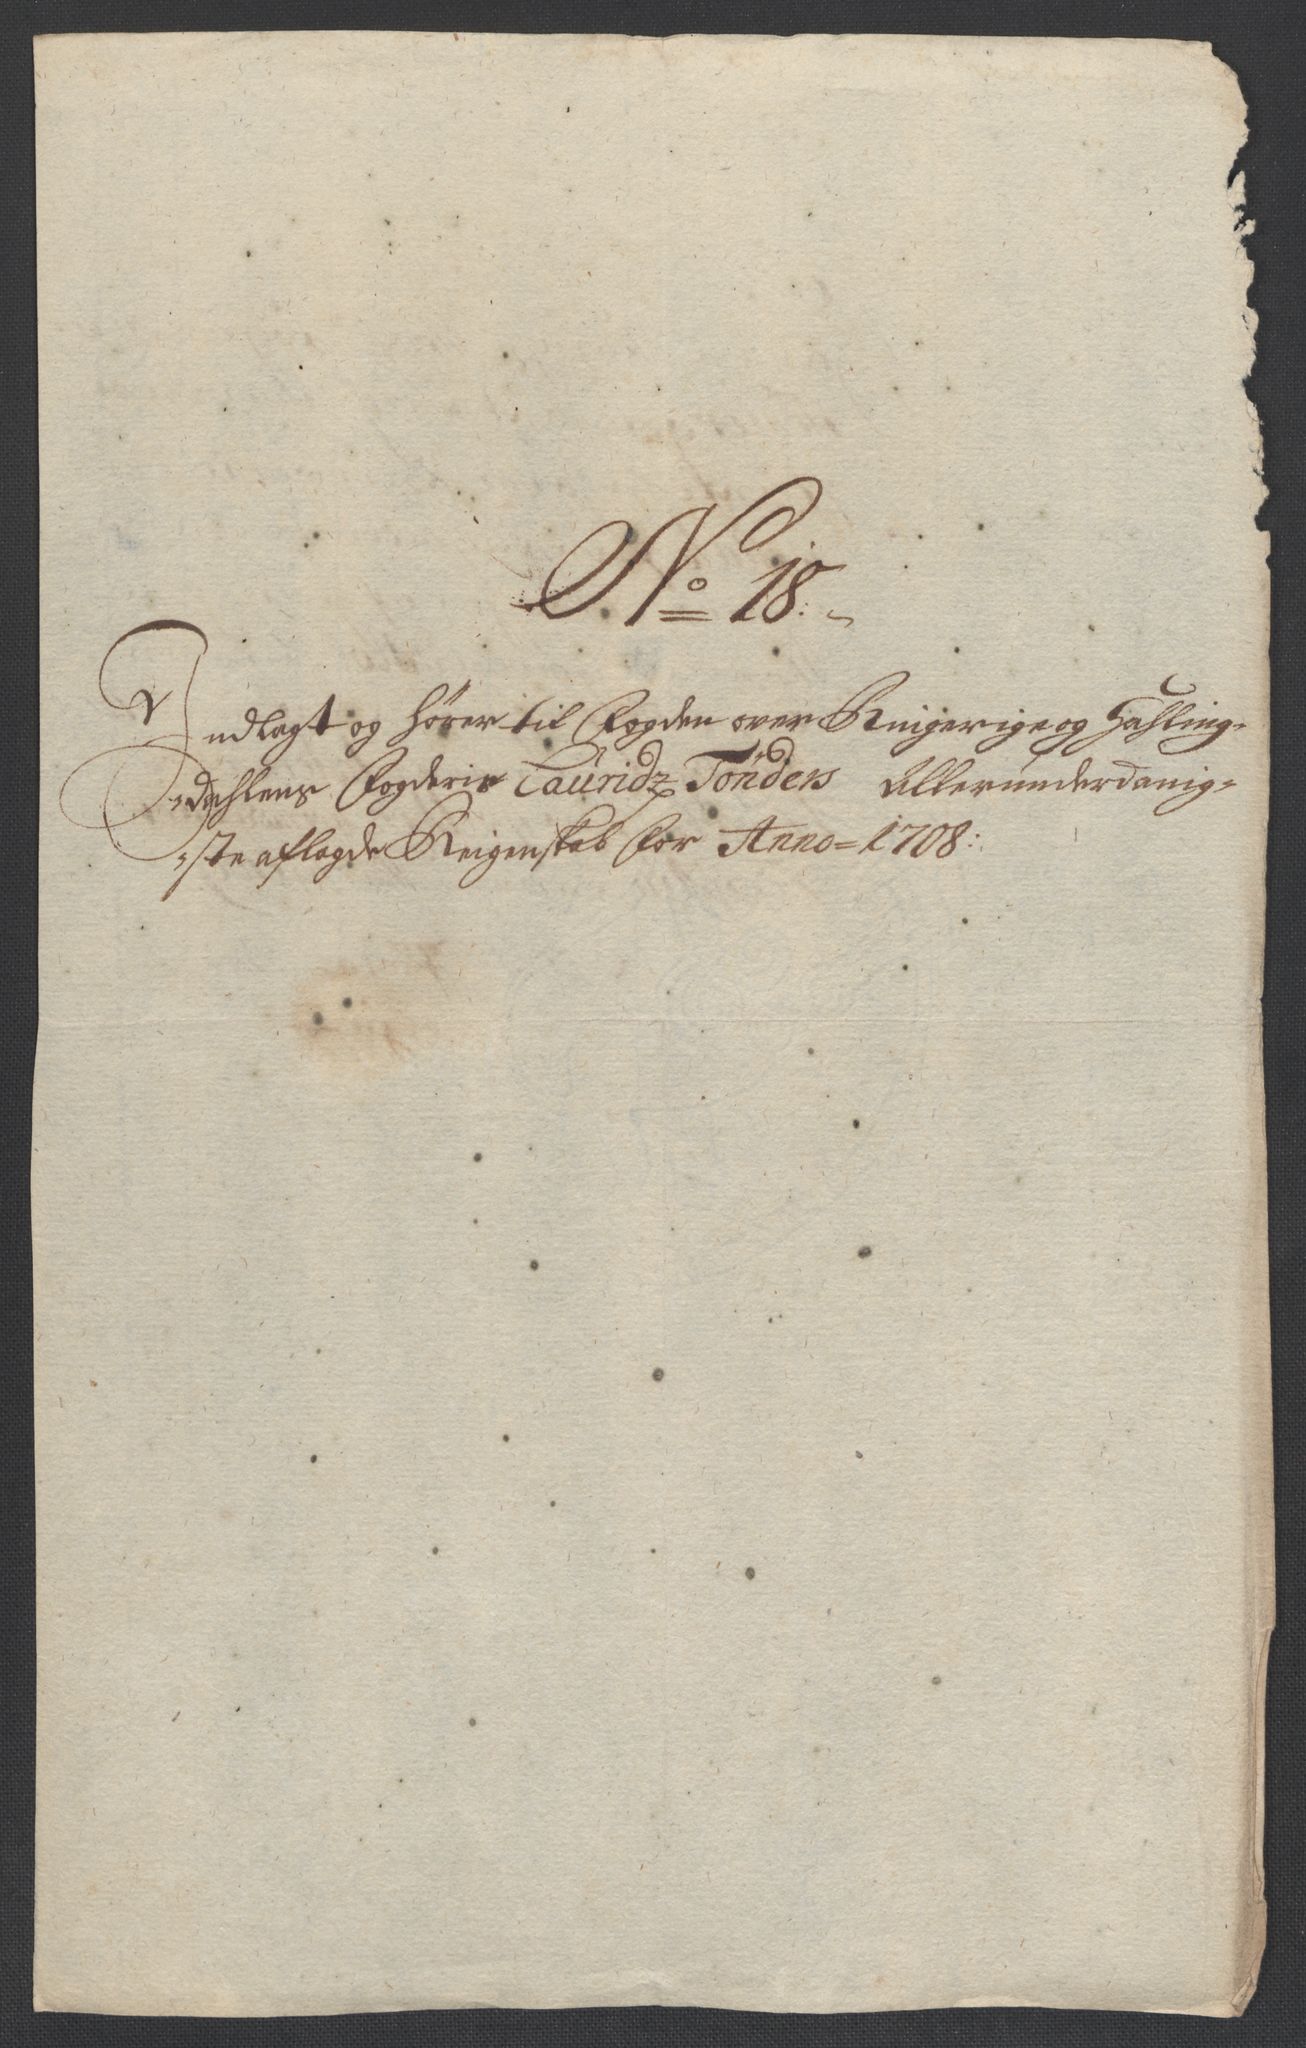 No 18.
Indlagt og hører til Fogden over Ringerige og Hahling-
dahlens Fogderie Lauridz Tönders Allerunderdanig-
ste aflagde Reigenskab for Anno = 1708: